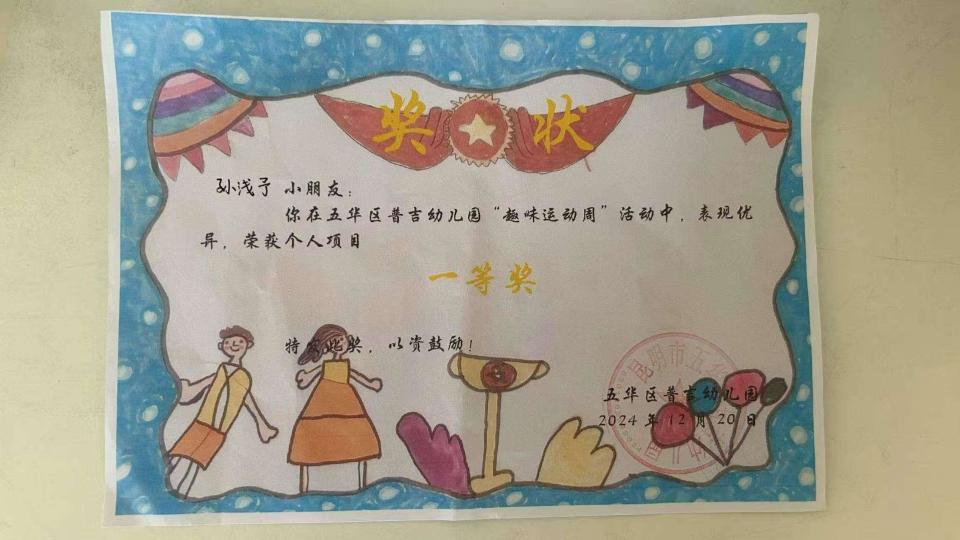 奖状
孙浅予 小朋友：
你在五华区普吉幼儿园“趣味运动周”活动中，表现优
异，荣获个人项目
一等奖
特发此奖，以资鼓励！
五华区普吉幼儿园
2024 年 12 月 20 日
昆明市五华